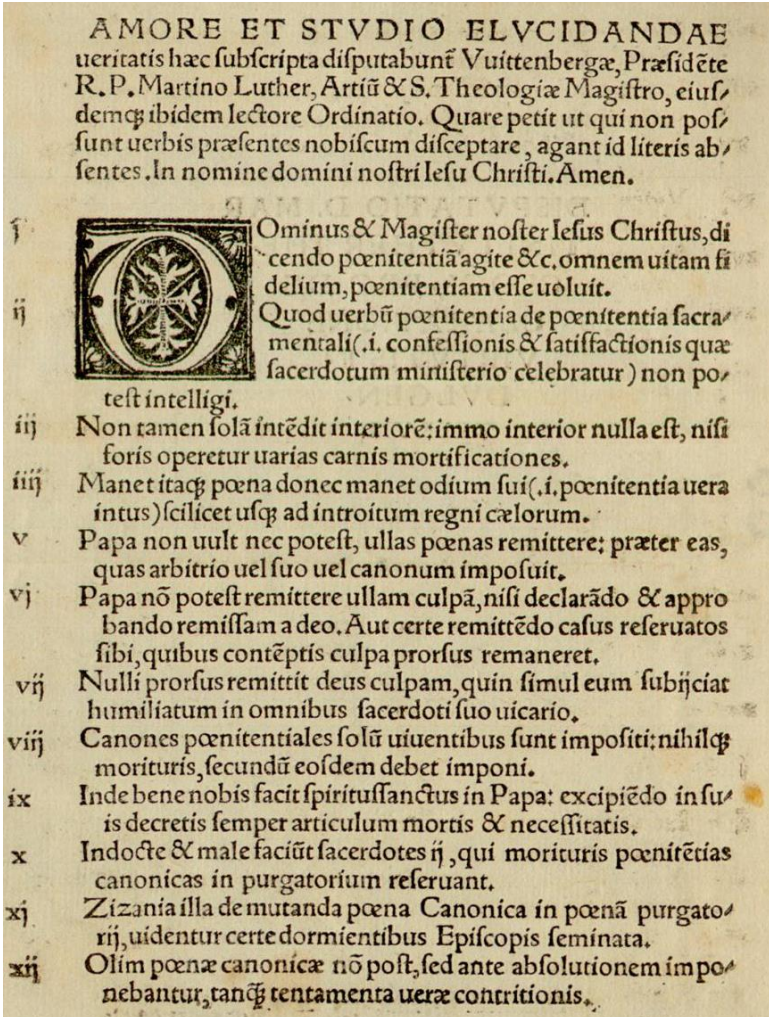 AMORE ET STVDIO ELVCIDANDAE
ueritatis hæc ſubſcripta diſputabunt̃ Vuittenbergæ, Præſidẽte
R. P. Martino Luther, Artiũ & S. Theologiæ Magiſtro, eiuſ⸗
demqꝫ ibidem lectore Ordinatio. Quare petit ut qui non poſ⸗
ſunt uerbis præſentes nobiſcum diſceptare, agant id literis ab⸗
ſentes. In nomine domini noſtri Ieſu Chriſti. Amen.
j DOminus & Magiſter noſter Ieſus Chriſtus, di
cendo pœnitentiã agite &c. omnem uitam fi
delium, pœnitentiam eſſe uoluit.
ij Quod uerbũ pœnitentia de pœnitentia ſacra⸗
mentali(.i. confeſſionis & ſatiſfactionis quæ
ſacerdotum miniſterio celebratur) non po⸗
teſt intelligi.
iij Non tamen ſolã intẽdit interiorẽ: immo interior nulla eſt, niſi
foris operetur uarias carnis mortificationes.
iiij Manet itaqꝫ pœna donec manet odium ſui(.i. pœnitentia uera
intus) ſcilicet uſqꝫ ad introitum regni cælorum.
v Papa non uult nec poteſt, ullas pœnas remittere: præter eas,
quas arbitrio uel ſuo uel canonum impoſuit.
vj Papa nõ poteſt remittere ullam culpã, niſi declarãdo & appro
bando remiſſam a deo. Aut certe remittẽdo caſus reſeruatos
ſibi, quibus contẽptis culpa prorſus remaneret.
vij Nulli prorſus remittit deus culpam, quin ſimul eum ſubijciat
humiliatum in omnibus ſacerdoti ſuo uicario.
viij Canones pœnitentiales ſolũ uiuentibus ſunt impoſiti: nihilqꝫ
morituris, ſecundũ eoſdem debet imponi.
ix Inde bene nobis facit ſpirituſſanctus in Papa: excipiẽdo in ſu⸗
is decretis ſemper articulum mortis & neceſſitatis.
x Indocte & male faciũt ſacerdotes ij, qui morituris pœnitẽtias
canonicas in purgatorium reſeruant.
xj Zizania illa de mutanda pœna Canonica in pœnã purgato⸗
rij, uidentur certe dormientibus Epiſcopis ſeminata.
xij Olim pœnæ canonicæ nõ poſt, ſed ante abſolutionem impo⸗
nebantur, tanqꝫ̃ tentamenta ueræ contritionis.